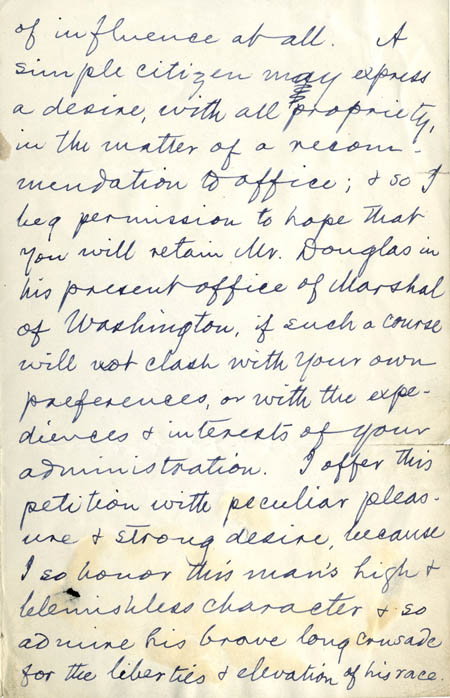 of influence at all. A
simple citizen may express
a desire, with all propriety,
in the matter of a recom-
mendation to office; & so I
beg permission to hope that
you will retain Mr. Douglas in
his present office of Marshal
of Washington, if such a course
will not clash with your own
preferences, or with the expe-
diences & interests of your
administration. I offer this
petition with peculiar pleas-
ure & strong desire, because
I so honor this man's high &
blemishless character & so
admire his brave long crusade
for the liberties & elevation of his race.